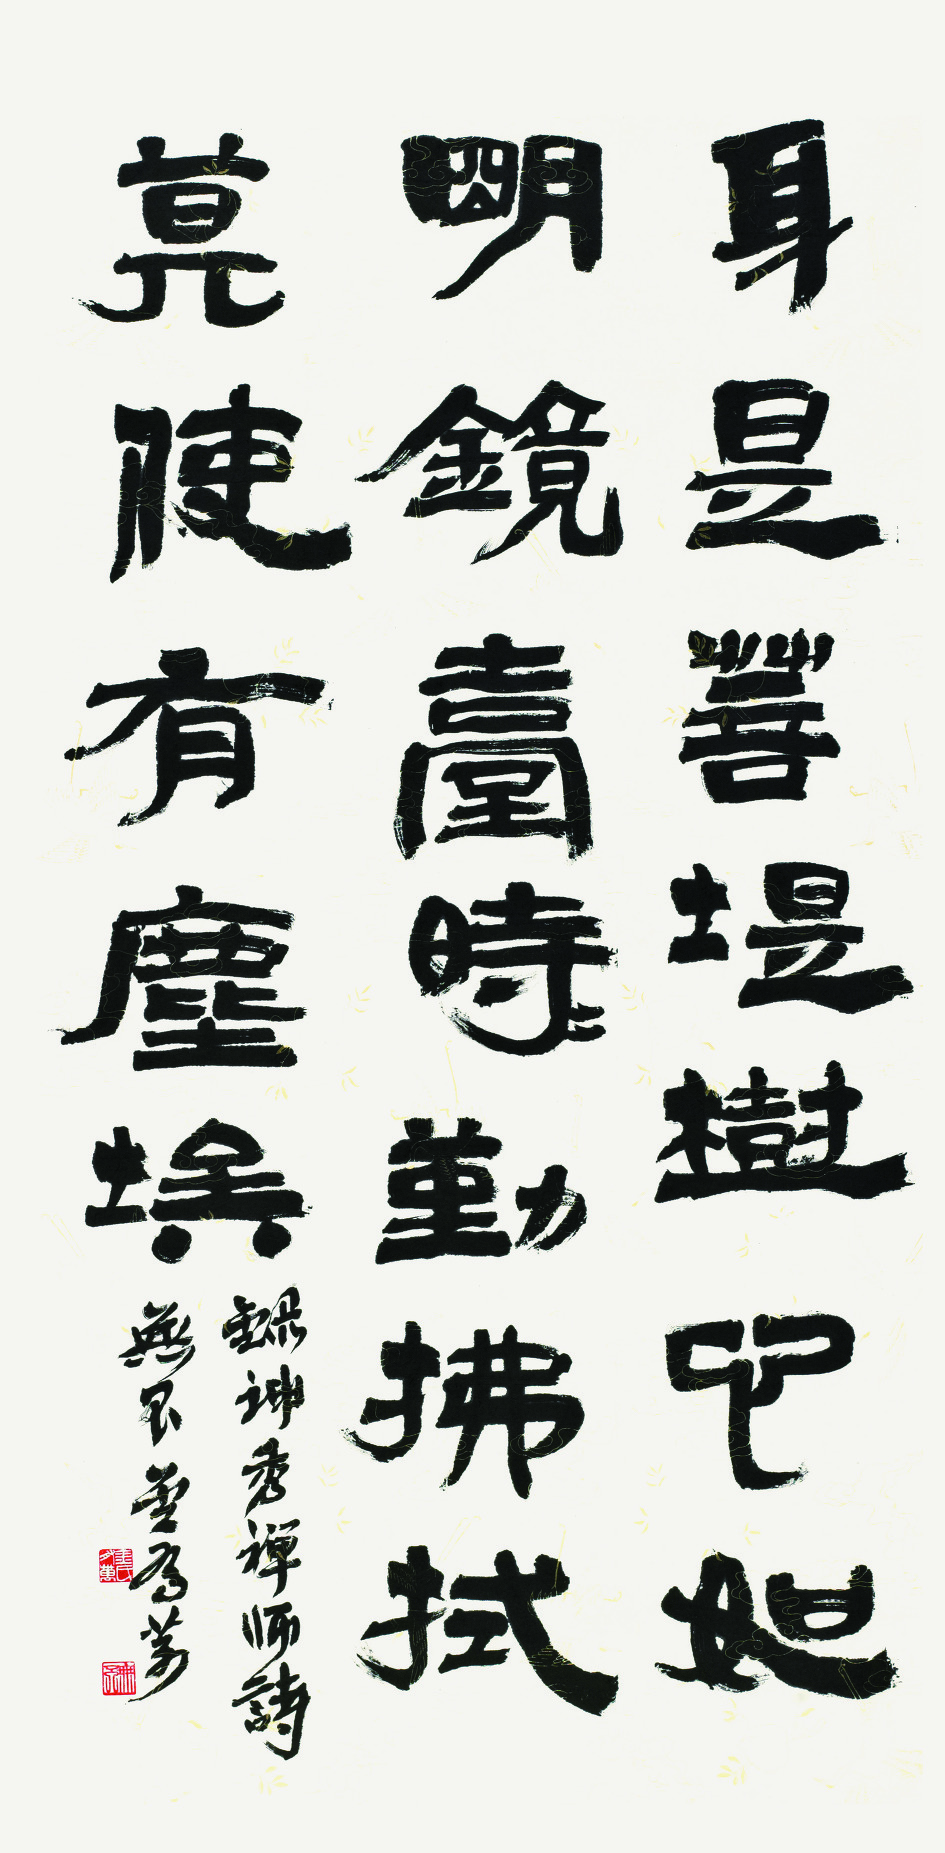 身是菩堤樹心如
明鏡臺時勤拂拭
莫使有塵埃
錄神秀禪師詩
無